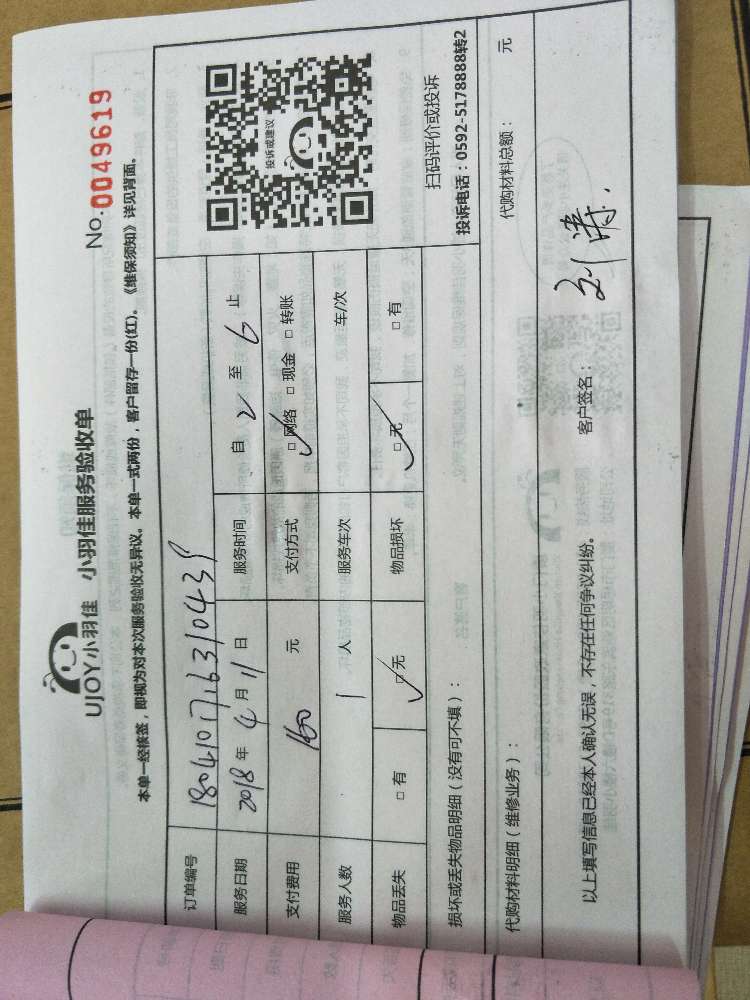 UJOY小羽佳 小羽佳服务验收单 No.0049619
本单一经核签，即视为对本次服务验收无异议。本单一式两份，客户留存一份(红)。《维保须知》详见背面。
订单编号 1804101716310439
服务日期 2018年4月11日 服务时间 自 2 至 6 止
支付费用 160 元 支付方式 □网络 □现金 □转账
服务人数 1 人 服务车次 车/次
物品丢失 □有 □无 物品损坏 □无 □有
投诉或建议
扫码评价或投诉
投诉电话：0592-5178888转2
损坏或丢失物品明细（没有可不填）：
代购材料明细（维修业务）： 代购材料总额： 元
以上填写信息已经本人确认无误，不存在任何争议纠纷。 客户签名：